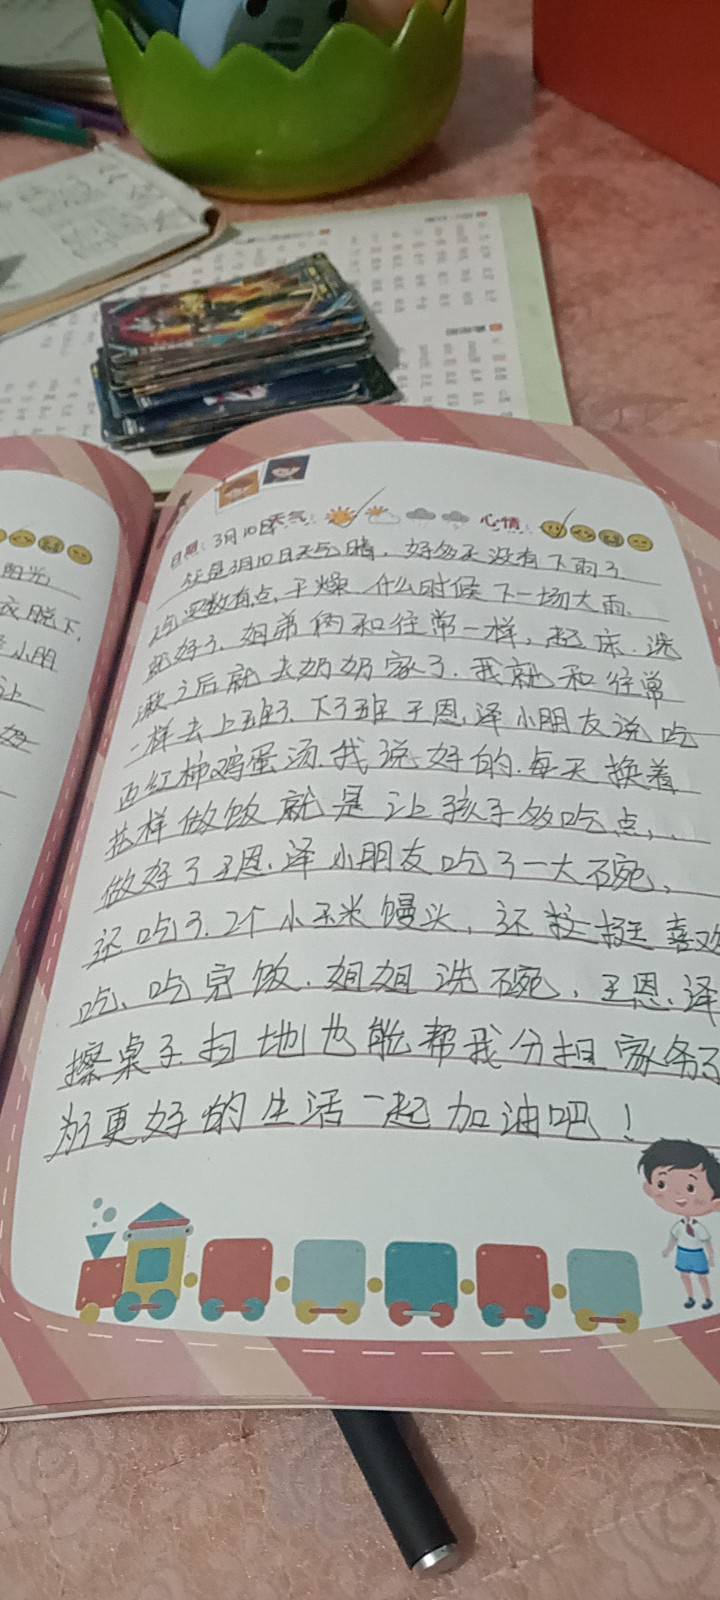 日期：3月10日 天气： 心情：
今天是3月10日天气晴，好多天没有下雨了，
空气有点干燥.什么时候下一场大雨.
就好了.姐弟俩和往常一样,起床.洗
漱之后就去奶奶家了.我就和往常
一样去上班了.下了班王恩.泽小朋友说吃
西红柿鸡蛋汤.我说好的.每天换着
花样做饭就是让孩子多吃点,.
做好了王恩.泽小朋友吃了一大碗、
还吃了.2个小玉米馒头，还挺挺喜欢
吃、吃完饭.姐姐洗碗，王恩.泽
擦桌子扫地也能帮我分担家务了
为了更好的生活一起加油吧！
阳光
衣脱下,
小朋
让